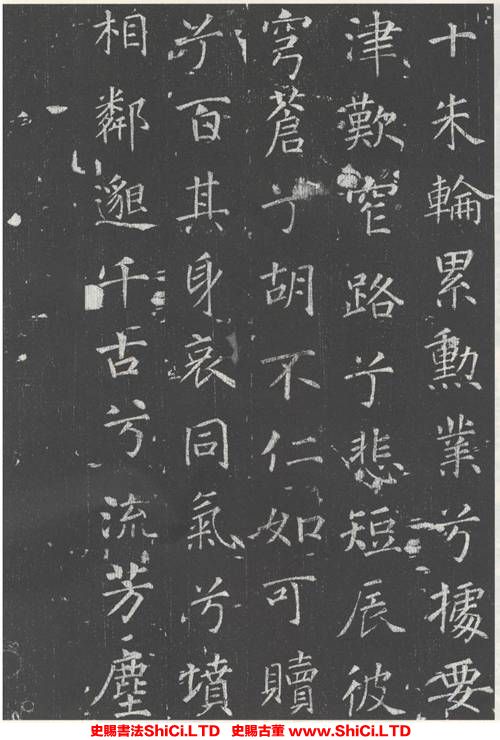 十朱輪累勳業兮據要
津歎窄路兮悲短辰彼
穹蒼兮胡不仁如可贖
兮百其身哀同氣兮墳
相鄰邈千古兮流芳塵
史賜書法ShiCi.LTD 史賜古董 www.ShiCi.LTD